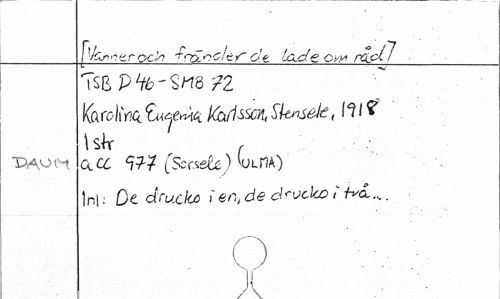 [Vänner och fränder de lade om råd]
TSB D 46 - SMB 72
Karolina Eugenia Karlsson, Stensele, 1918
1 str
DAUM acc 977 (Sorsele) (ULMA)
Inl: De drucko i en, de drucko i två...